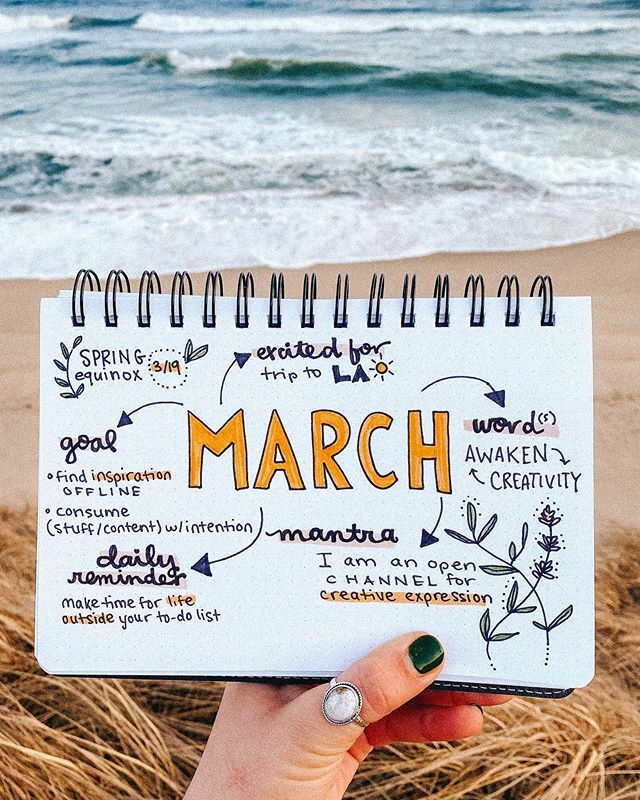 SPRING
equinox
3/19
excited for
trip to LA
MARCH
goal
• find inspiration
OFFLINE
• consume
(stuff/content) w/intention
word(s)
AWAKEN
CREATIVITY
daily
reminder
make time for life
outside your to-do list
mantra
I am an open
CHANNEL for
creative expression